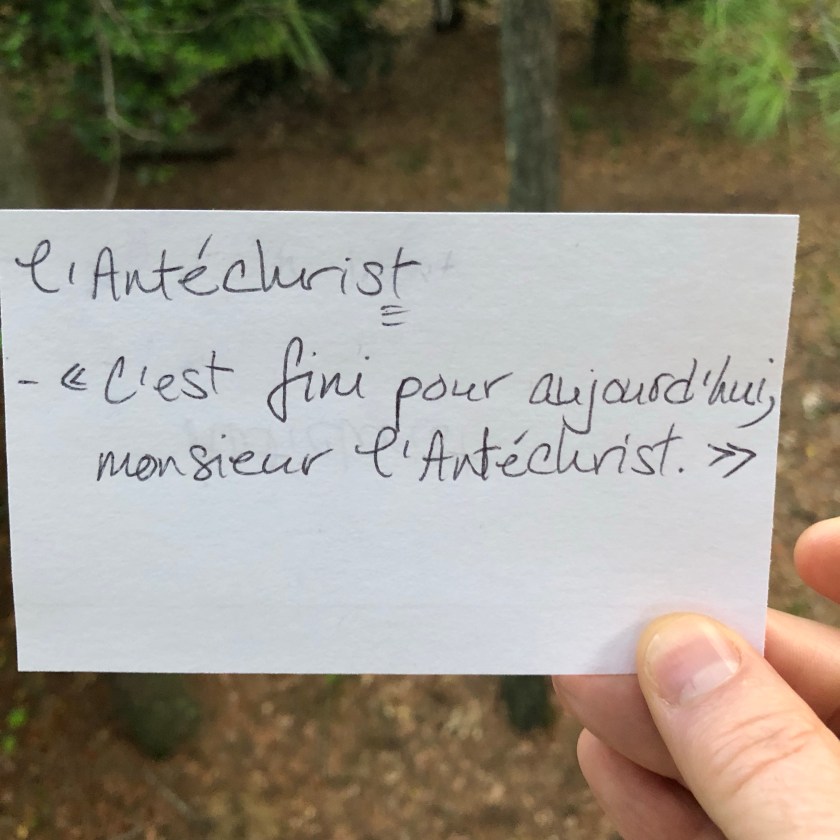 l'Antéchrist
- « C'est fini pour aujourd'hui,
monsieur l'Antéchrist. »